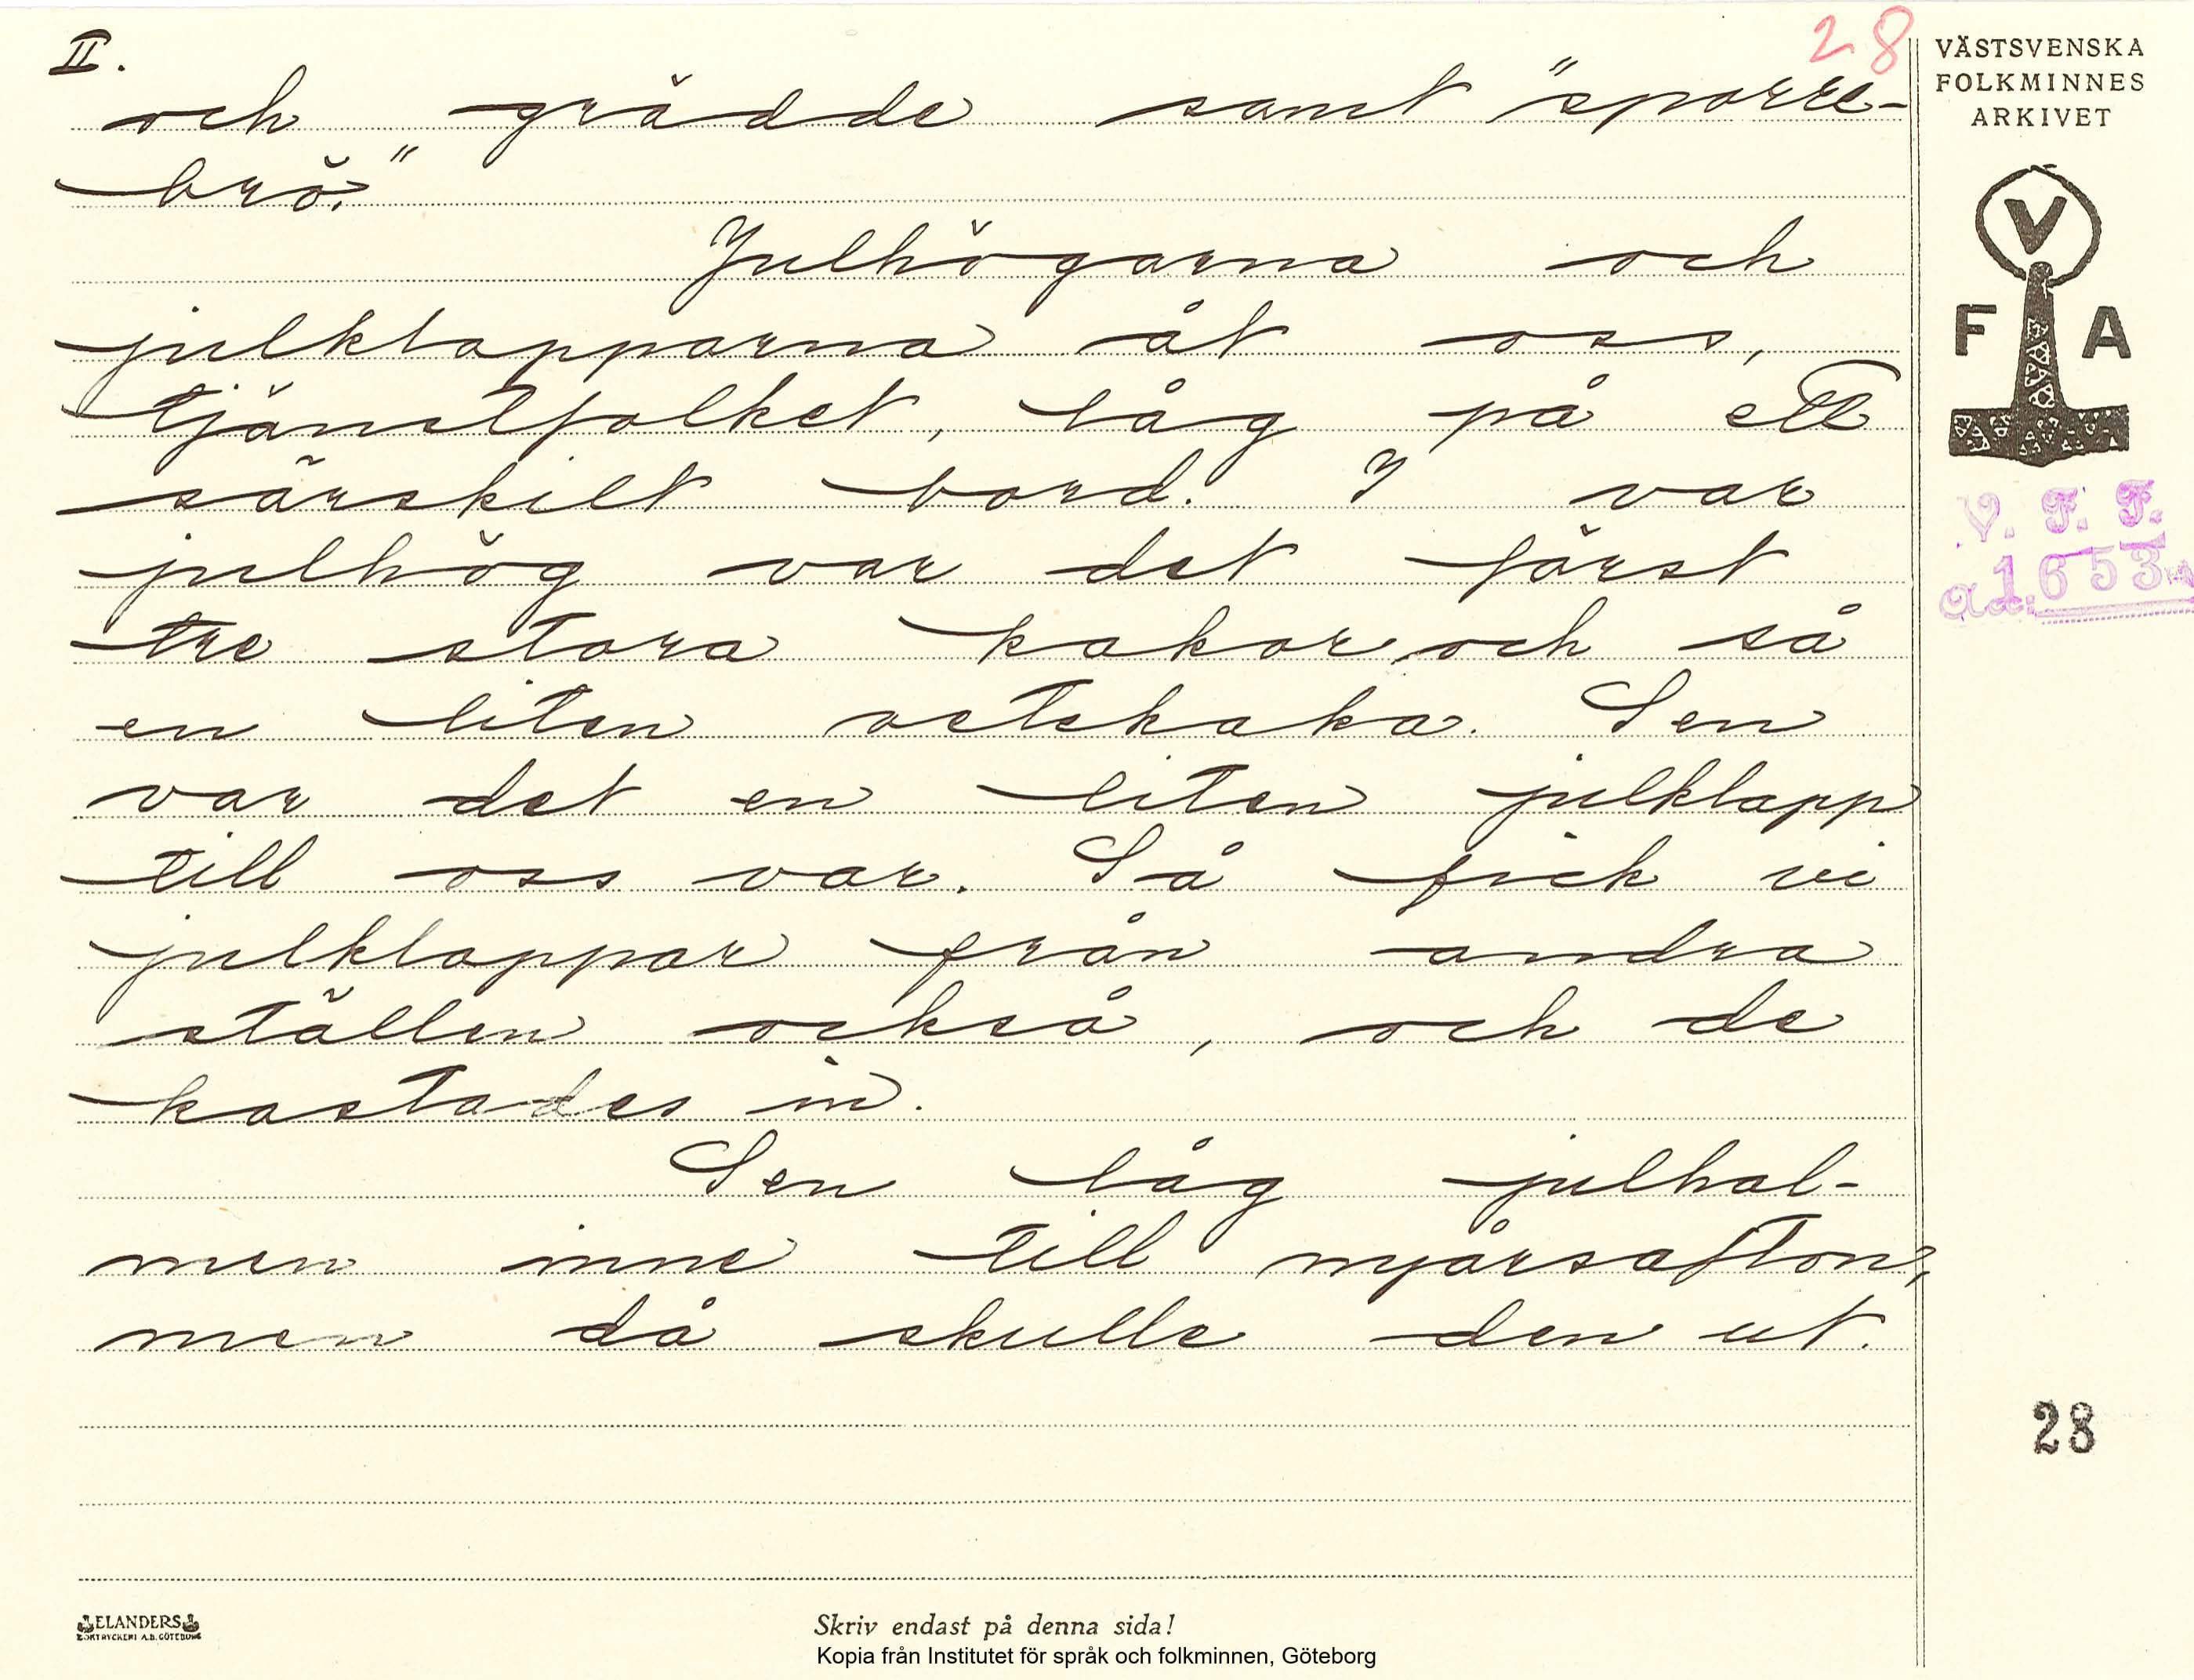 II.
28
och grädde samt "sporre-
brö."
Julhögarna och
julklapparna åt oss,
tjänstfolket, låg på ett
särskilt bord. I var
julhög var det först
tre stora kakor och så
en liten vetekaka. Sen
var det en liten julklapp
till oss var. Så fick vi
julklappar från andra
ställen också, och de
kastades in.
Sen låg julhal-
men inne till nyårsafton,
men då skulle den ut.
VÄSTSVENSKA
FOLKMINNES
ARKIVET
V
F A
V. F. F.
1653
28
ELANDERS
BOKTRYCKERI A.B. GÖTEBORG
Skriv endast på denna sida!
Kopia från Institutet för språk och folkminnen, Göteborg